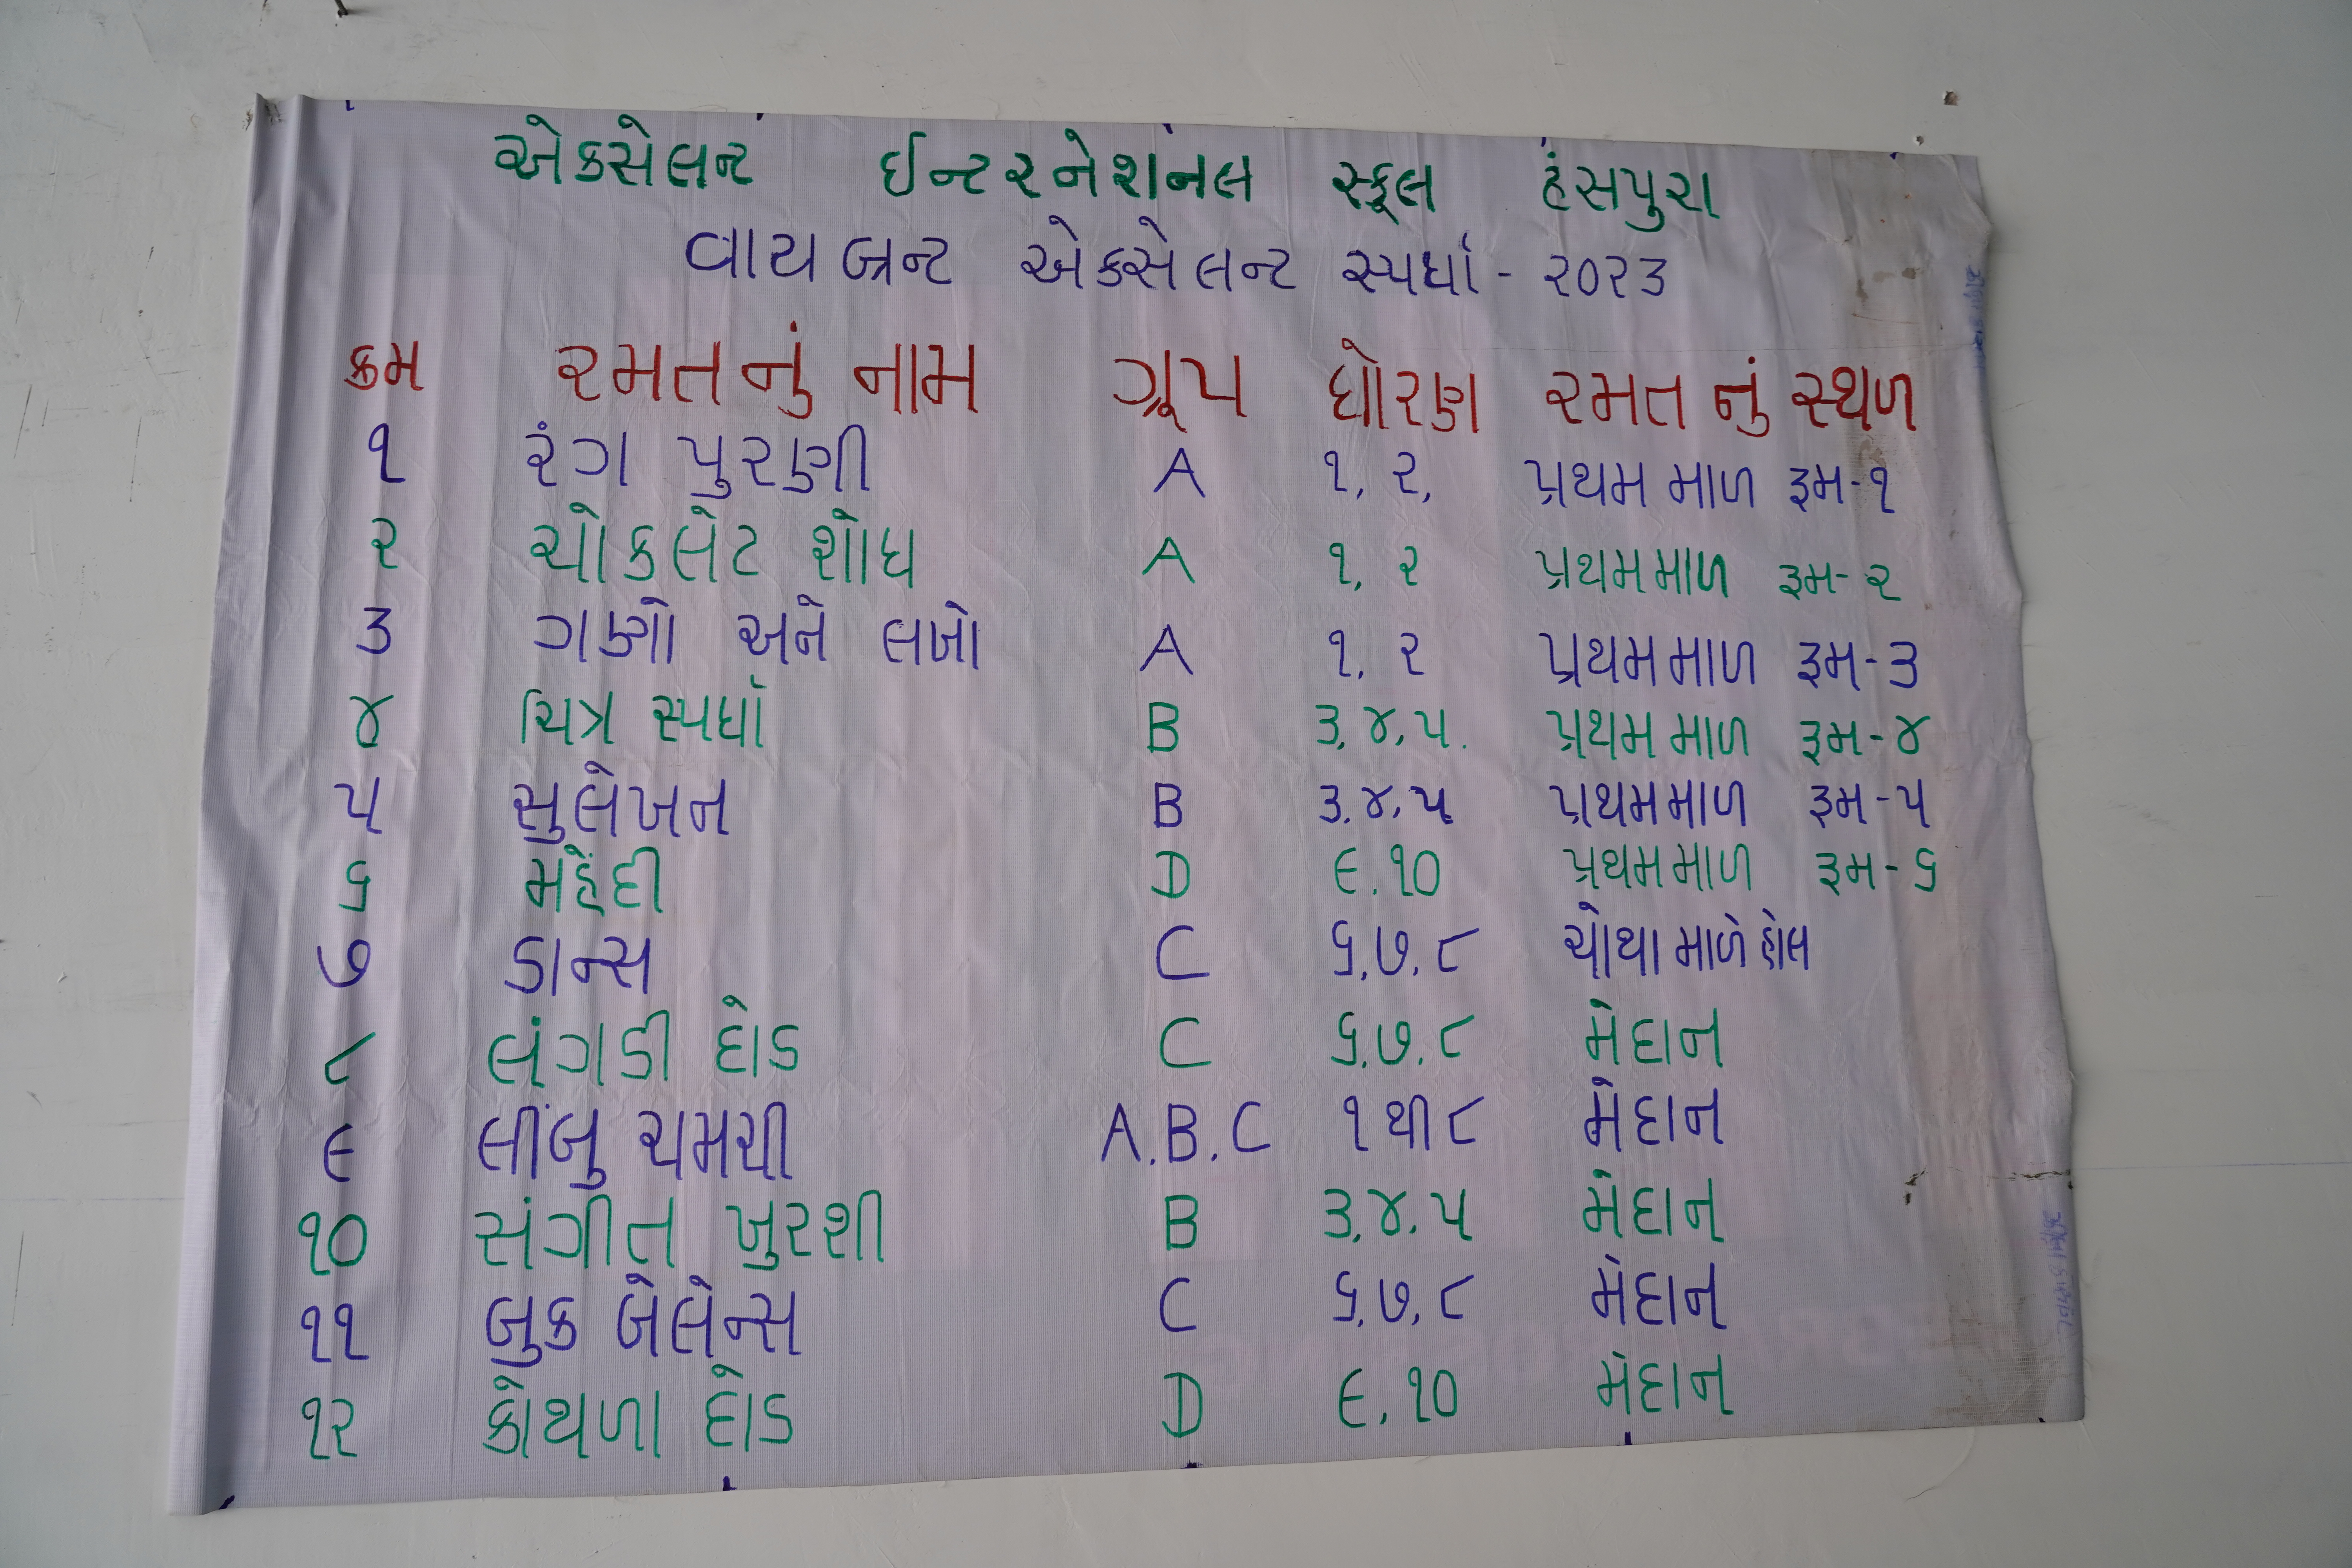 એકસેલન્ટ ઈન્ટરનેશનલ સ્કૂલ હંસપુરા
વાયબ્રન્ટ એકસેલન્ટ સ્પર્ધા - ૨૦૨૩
ક્રમ રમતનું નામ ગ્રૂપ ધોરણ રમતનું સ્થળ
૧ રંગ પુરણી A ૧, ૨, પ્રથમ માળ રૂમ-૧
૨ ચોકલેટ શોધ A ૧, ૨ પ્રથમ માળ રૂમ-૨
૩ ગણો અને લખો A ૧, ૨ પ્રથમ માળ રૂમ-૩
૪ ચિત્ર સ્પર્ધા B ૩,૪,૫. પ્રથમ માળ રૂમ-૪
૫ સુલેખન B ૩,૪,૫ પ્રથમ માળ રૂમ-૫
૬ મહેંદી D ૯.૧૦ પ્રથમ માળ રૂમ-૬
૭ ડાન્સ C ૬,૭,૮ ચોથા માળે હોલ
૮ લંગડી દોડ C ૬,૭,૮ મેદાન
૯ લીંબુ ચમચી A.B.C ૧ થી ૮ મેદાન
૧૦ સંગીત ખુરશી B ૩,૪,૫ મેદાન
૧૧ બુક બેલેન્સ C ૬,૭,૮ મેદાન
૧૨ કોથળા દોડ D ૯,૧૦ મેદાન